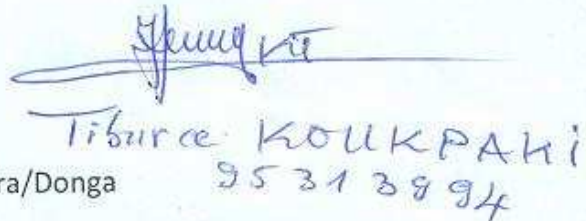 Tiburce KOUKPAKI
ra/Donga
95313994